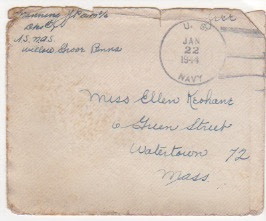 U.S.
JAN
22
1944
NAVY
U.S. N.A.S.
Willow Grove Penna
Miss Ellen Keohane
6 Green Street
Watertown 72
Mass